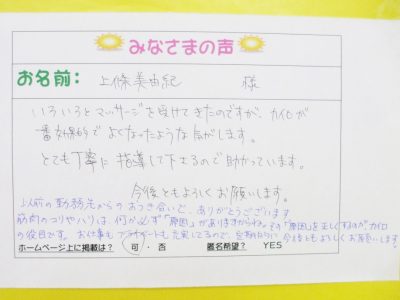 みなさまの声
お名前： 上條美由紀 様
いろいろとマッサージを受けてきたのですが、カイロが
一番効果的でよくなったような気がします。
とても丁寧に指導して下さるので助かっています。
今後ともよろしくお願いします。
以前の勤務先からのおつき合いで、ありがとうございます。
筋肉のコリやハリは、何か必ず「原因」がありますからね。その「原因」を正しくするのがカイロ
の役目です。お仕事もプライベートも充実してるので、定期的に今後ともよろしくお願いします。
ホームページ上に掲載は？ 可 ・ 否 匿名希望？ YES